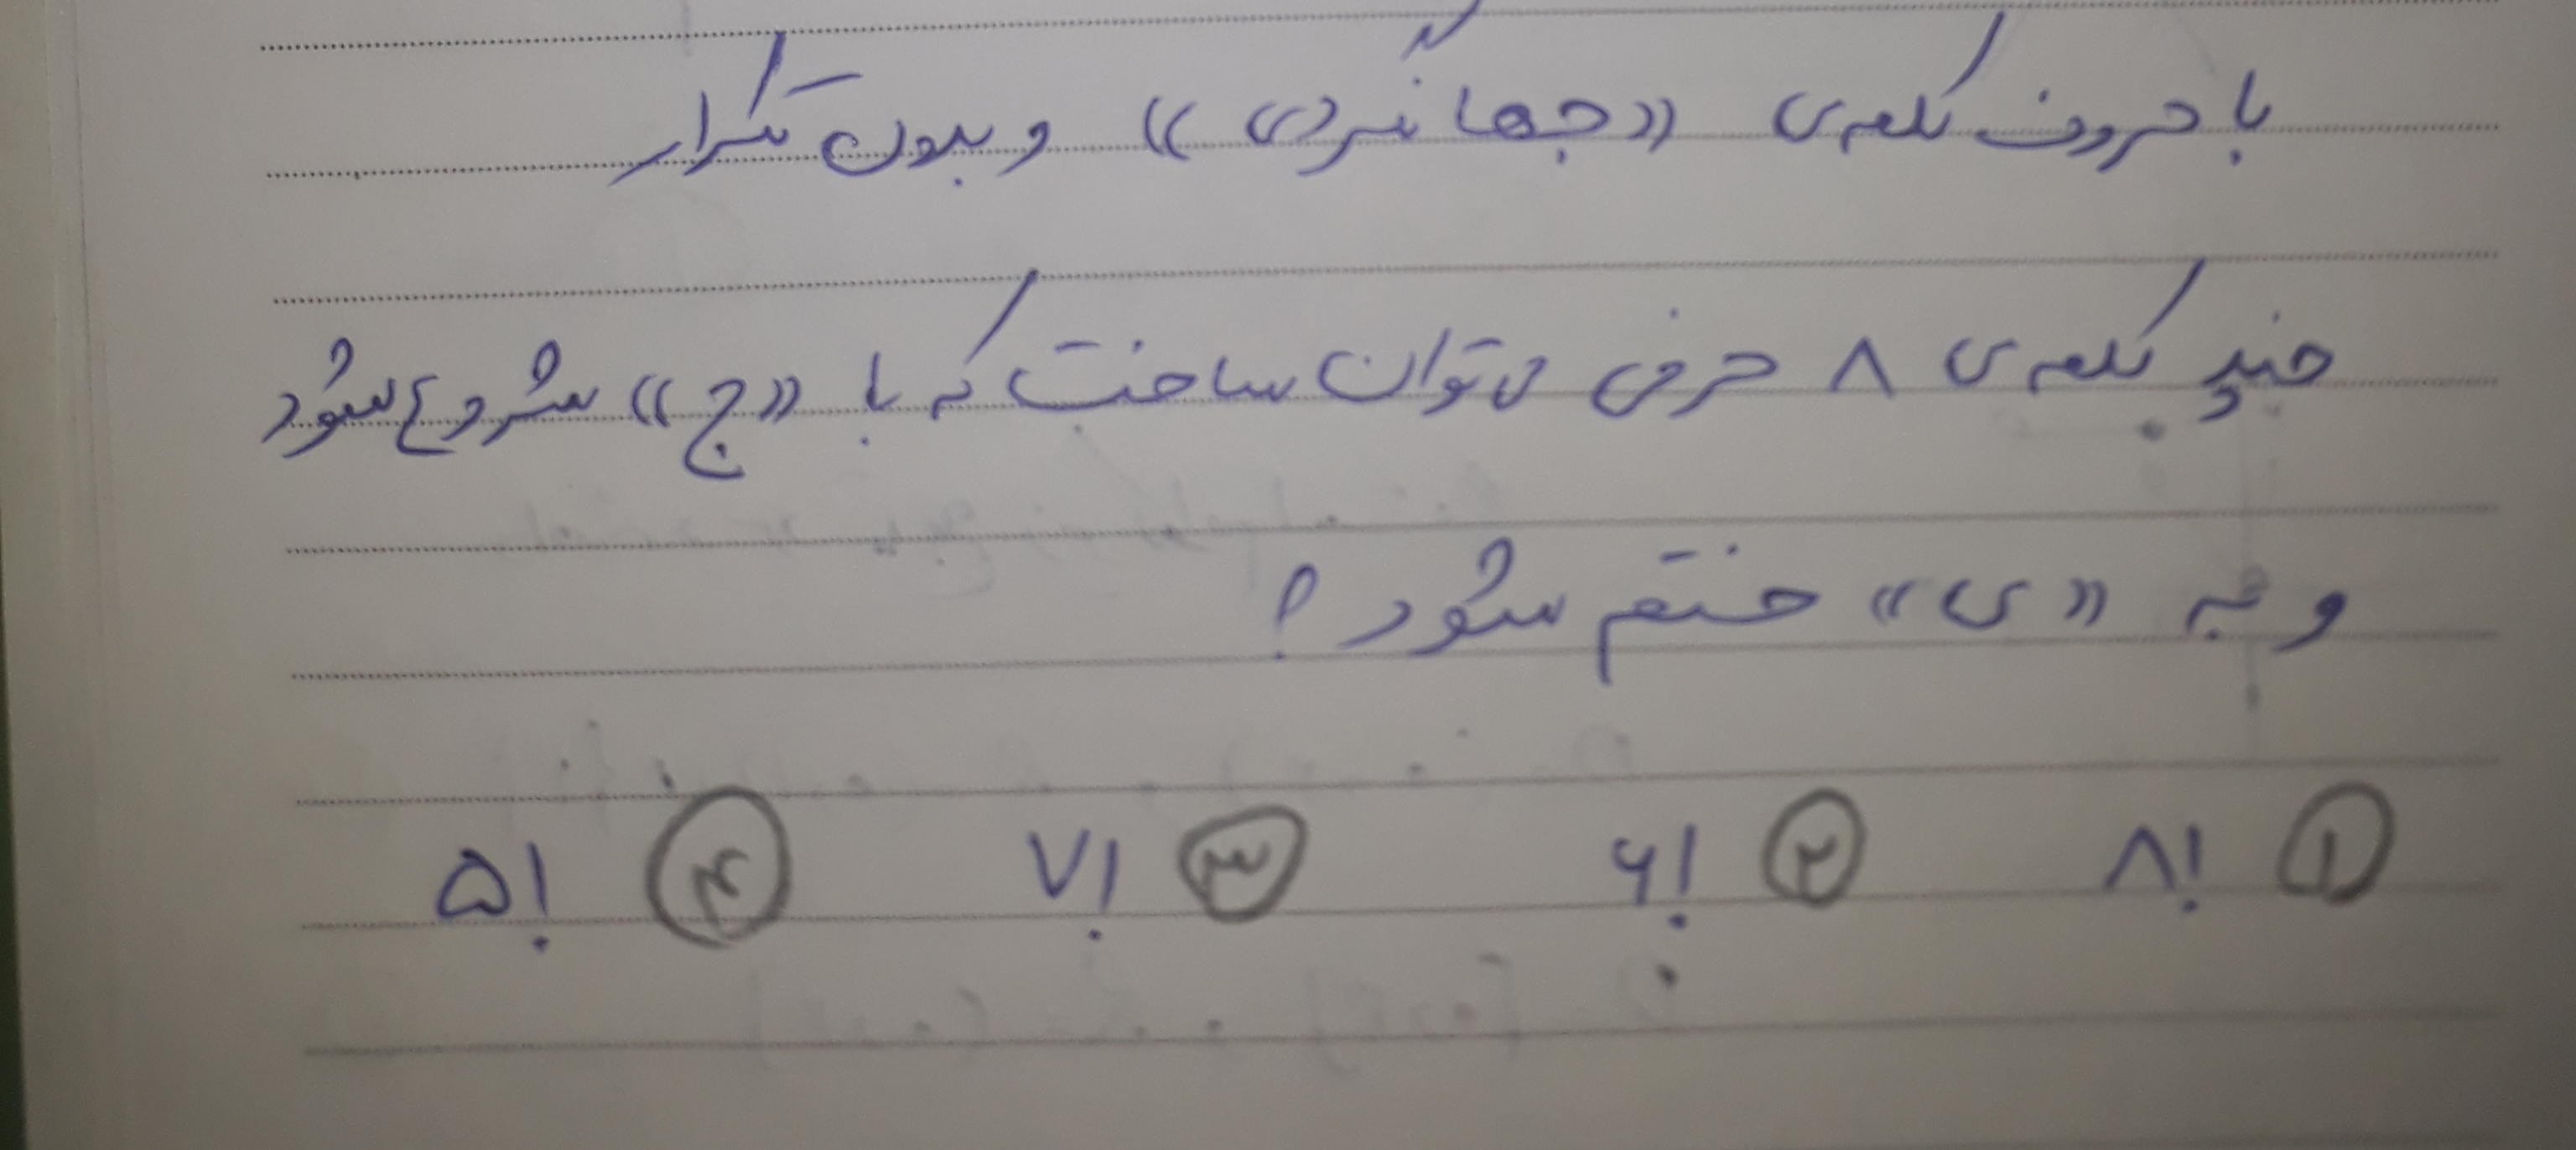 با حروف کلمه‌ی «جهانگردی» و بدون تکرار
چند کلمه‌ی ۸ حرفی می توان ساخت که با «ج» شروع شود
و به «ی» ختم شود؟
① ۸! ② ۶! ③ ۷! ④ ۵!